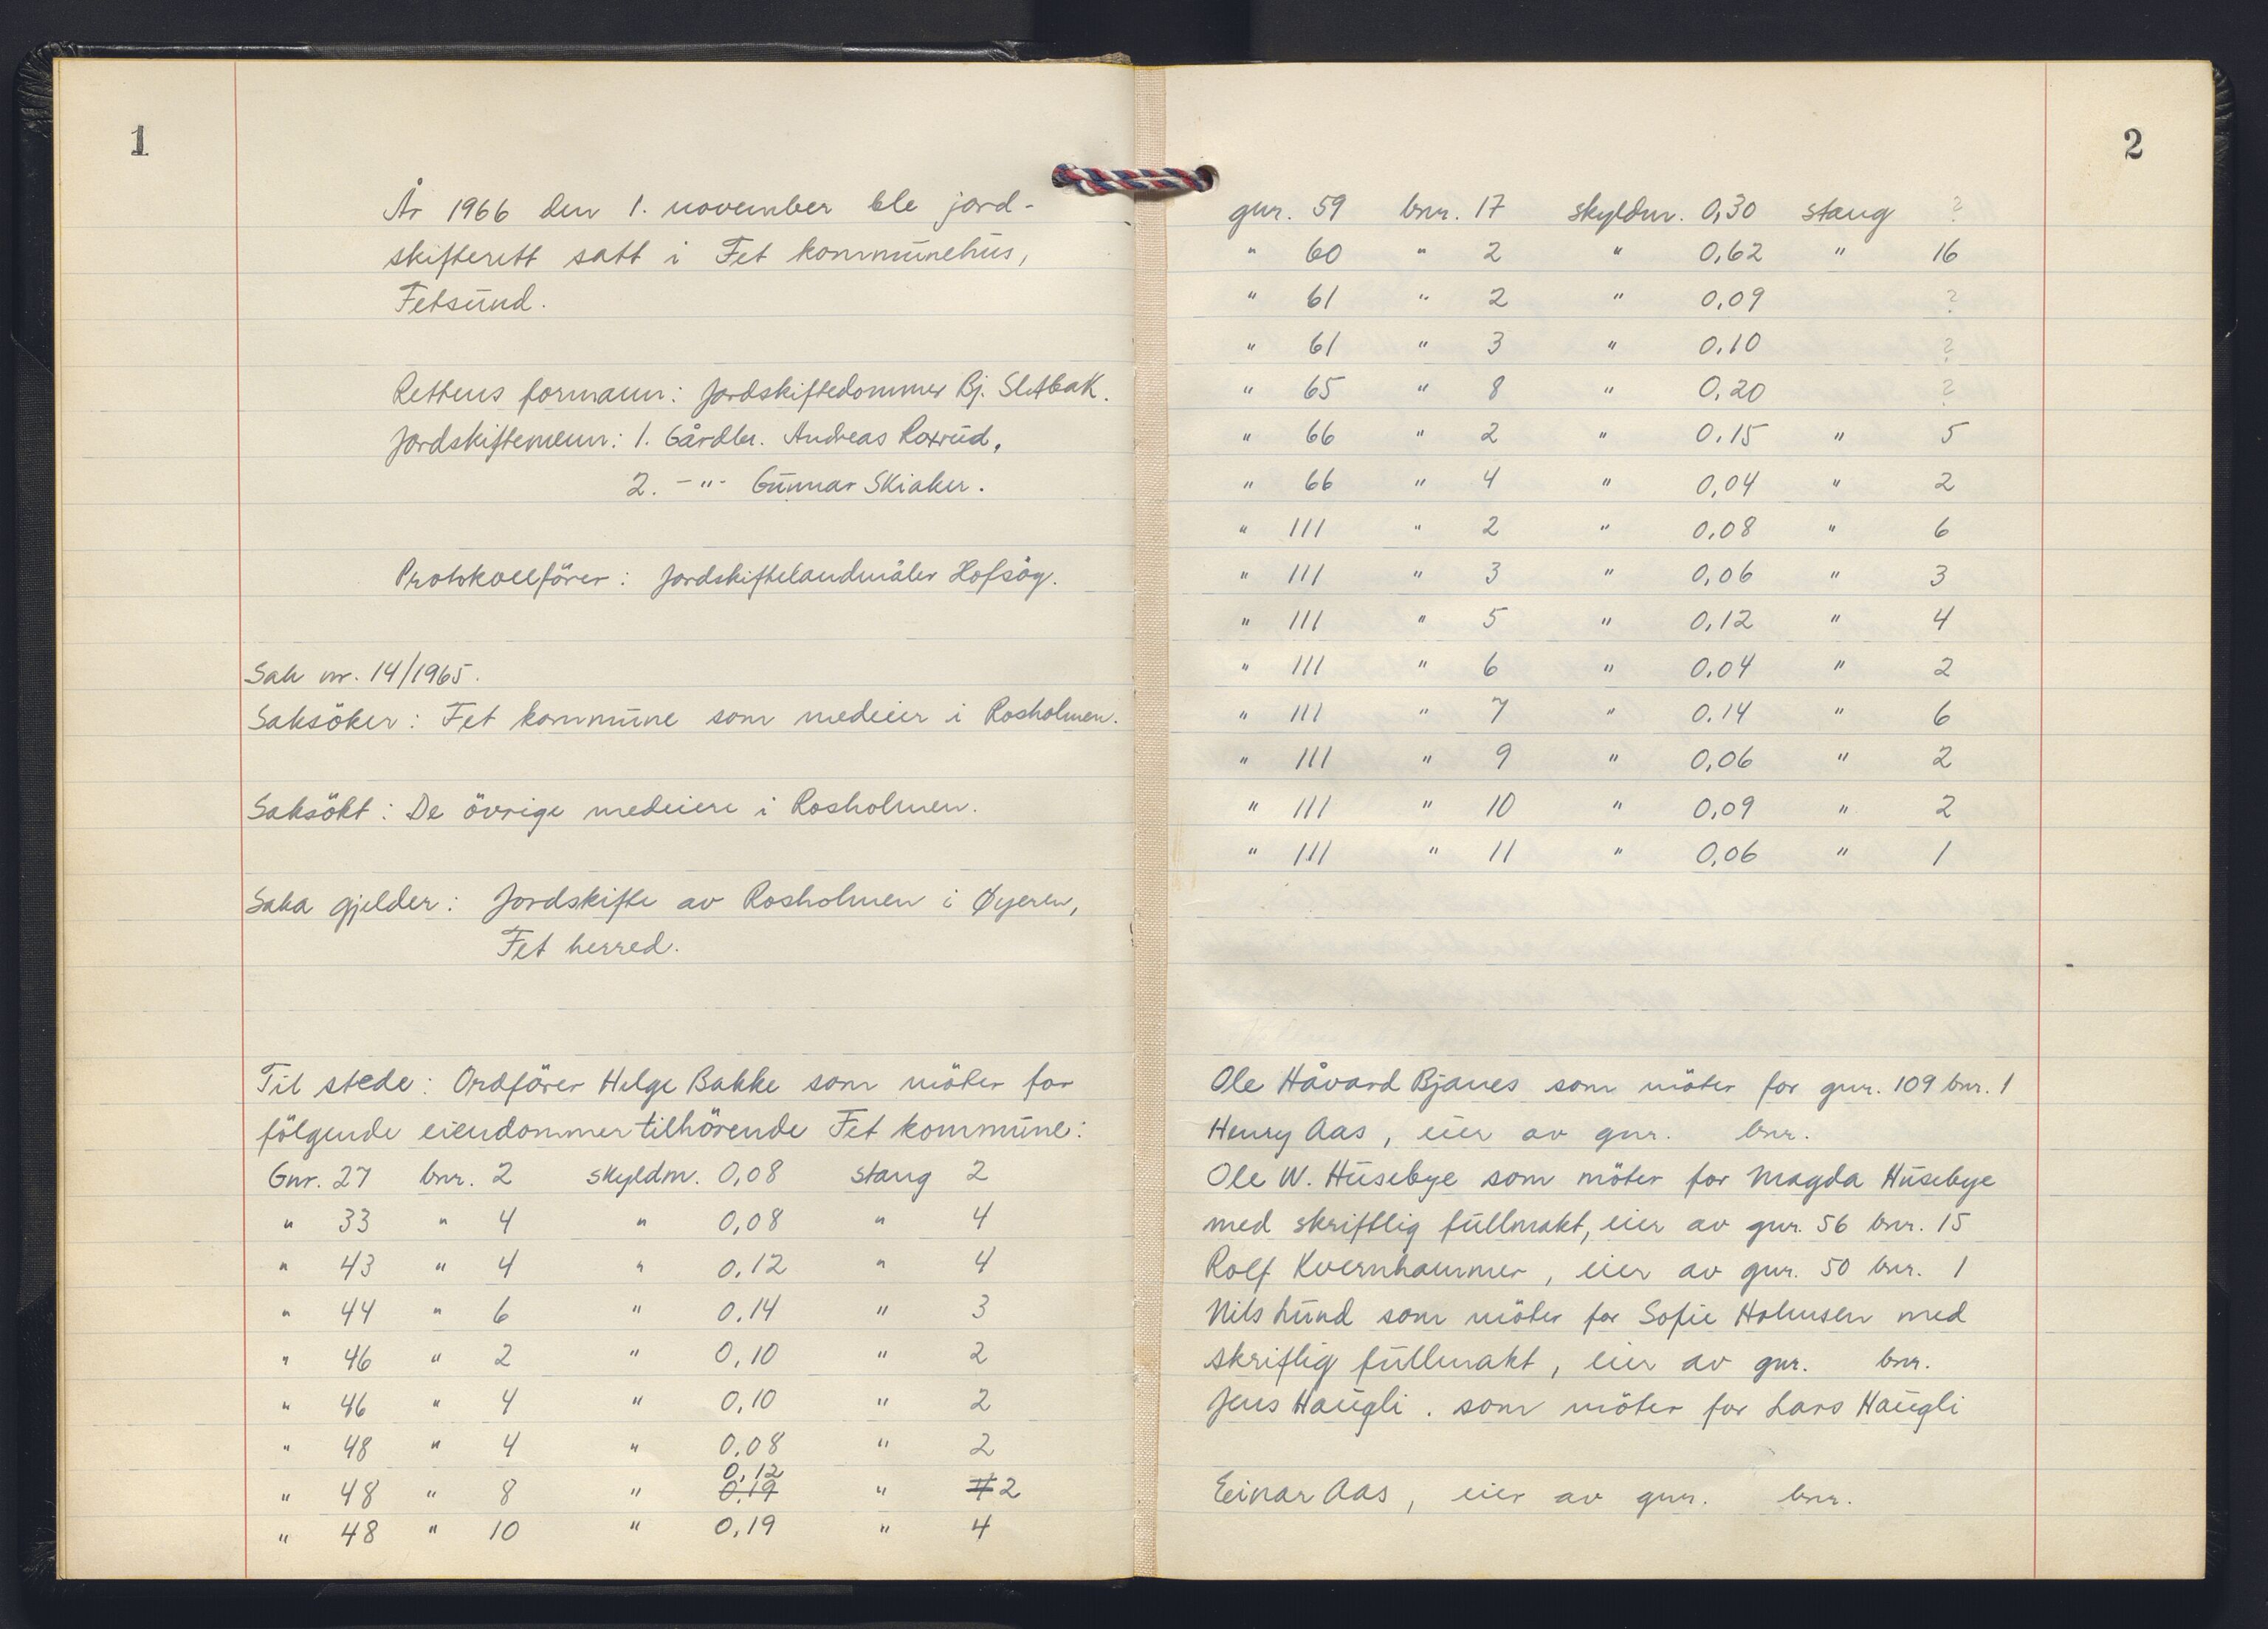 1
År 1966 den 1. november ble jord-
skifterett satt i Fet kommunehus,
Fetsund.
Rettens formann: Jordskiftedommer Bj. Sletbak.
Jordskiftemenn: 1. Gårdbr. Andreas Roxrud,
2. -"- Gunnar Skiaker.
Protokollförer: Jordskiftelandmåler Hofsöy.
Sak nr. 14/1965.
Saksöker: Fet kommune som medeier i Rosholmen.
Saksökt: De övrige medeiere i Rosholmen.
Saka gjelder: Jordskifte av Rosholmen i Øyeren,
Fet herred.
Til stede: Ordförer Helge Bakke som möter for
fölgende eiendommer tilhörende Fet kommune:
Gnr. 27 bnr. 2 skyldm. 0,08 stang 2
" 33 " 4 " 0,08 " 4
" 43 " 4 " 0,12 " 4
" 44 " 6 " 0.14 " 3
" 46 " 2 " 0,10 " 2
" 46 " 4 " 0,10 " 2
" 48 " 4 " 0.08 " 2
0,12
" 48 " 8 " 0,19 " 4 2
" 48 " 10 " 0,19 " 4
2
gnr. 59 bnr. 17 skyldm. 0,30 stang ?
" 60 " 2 " 0,62 " 16
" 61 " 2 " 0,09 ?
" 61 " 3 " 0.10 ?
" 65 " 8 " 0,20 ?
" 66 " 2 " 0.15 " 5
" 66 " 4 " 0,04 " 2
" 111 " 2 " 0,08 " 6
" 111 " 3 " 0,06 " 3
" 111 " 5 " 0,12 " 4
" 111 " 6 " 0.04 " 2
" 111 " 7 " 0.14 " 6
" 111 " 9 " 0,06 " 2
" 111 " 10 " 0,09 " 2
" 111 " 11 " 0,06 " 1
Ole Håvard Bjanes som möter for gnr. 109 bnr. 1
Henry Aas, eier av gnr. bnr.
Ole W. Husebye som möter for Magda Husebye
med skriftlig fullmakt, eier av gnr. 56 bnr. 15
Rolf Kvernhammer, eier av gnr. 50 bnr. 1
Nils Lund som möter for Sofie Holmsen med
skriftlig fullmakt, eier av gnr. bnr.
Jens Haugli. som möter for Lars Haugli
Einar Aas, eier av gnr. bnr.